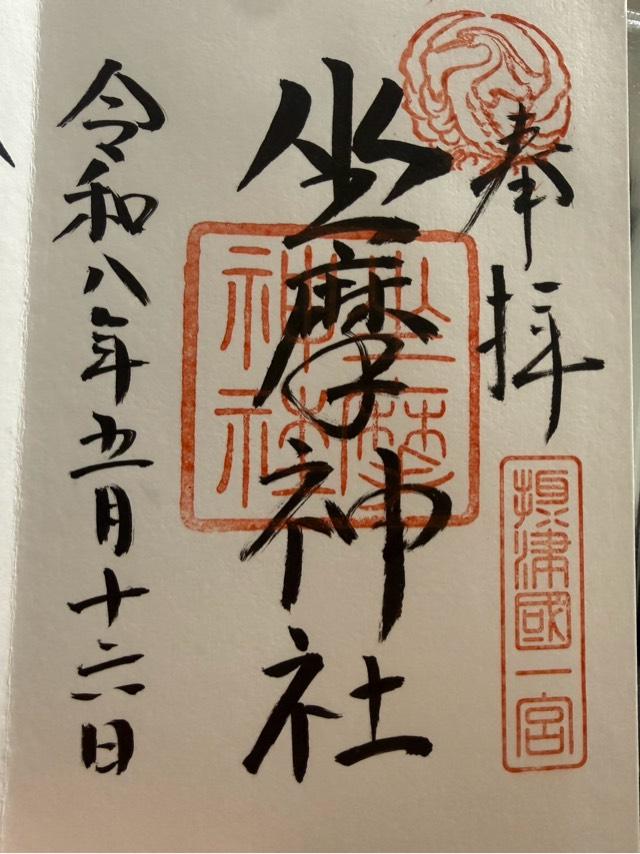 奉拝
摂津國一宮
坐摩神社
坐摩神社
令和八年五月十六日